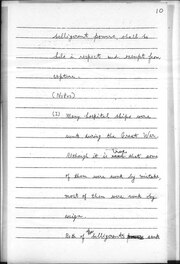 10
belligerent powers, shall be
held in respect and exempt from
capture.
(Notes)
(1) Many hospital ships were
sunk during the Great War.
Although it is true that some
of them were sunk by mistake
most of them were sunk by
design.
of the belligerents and